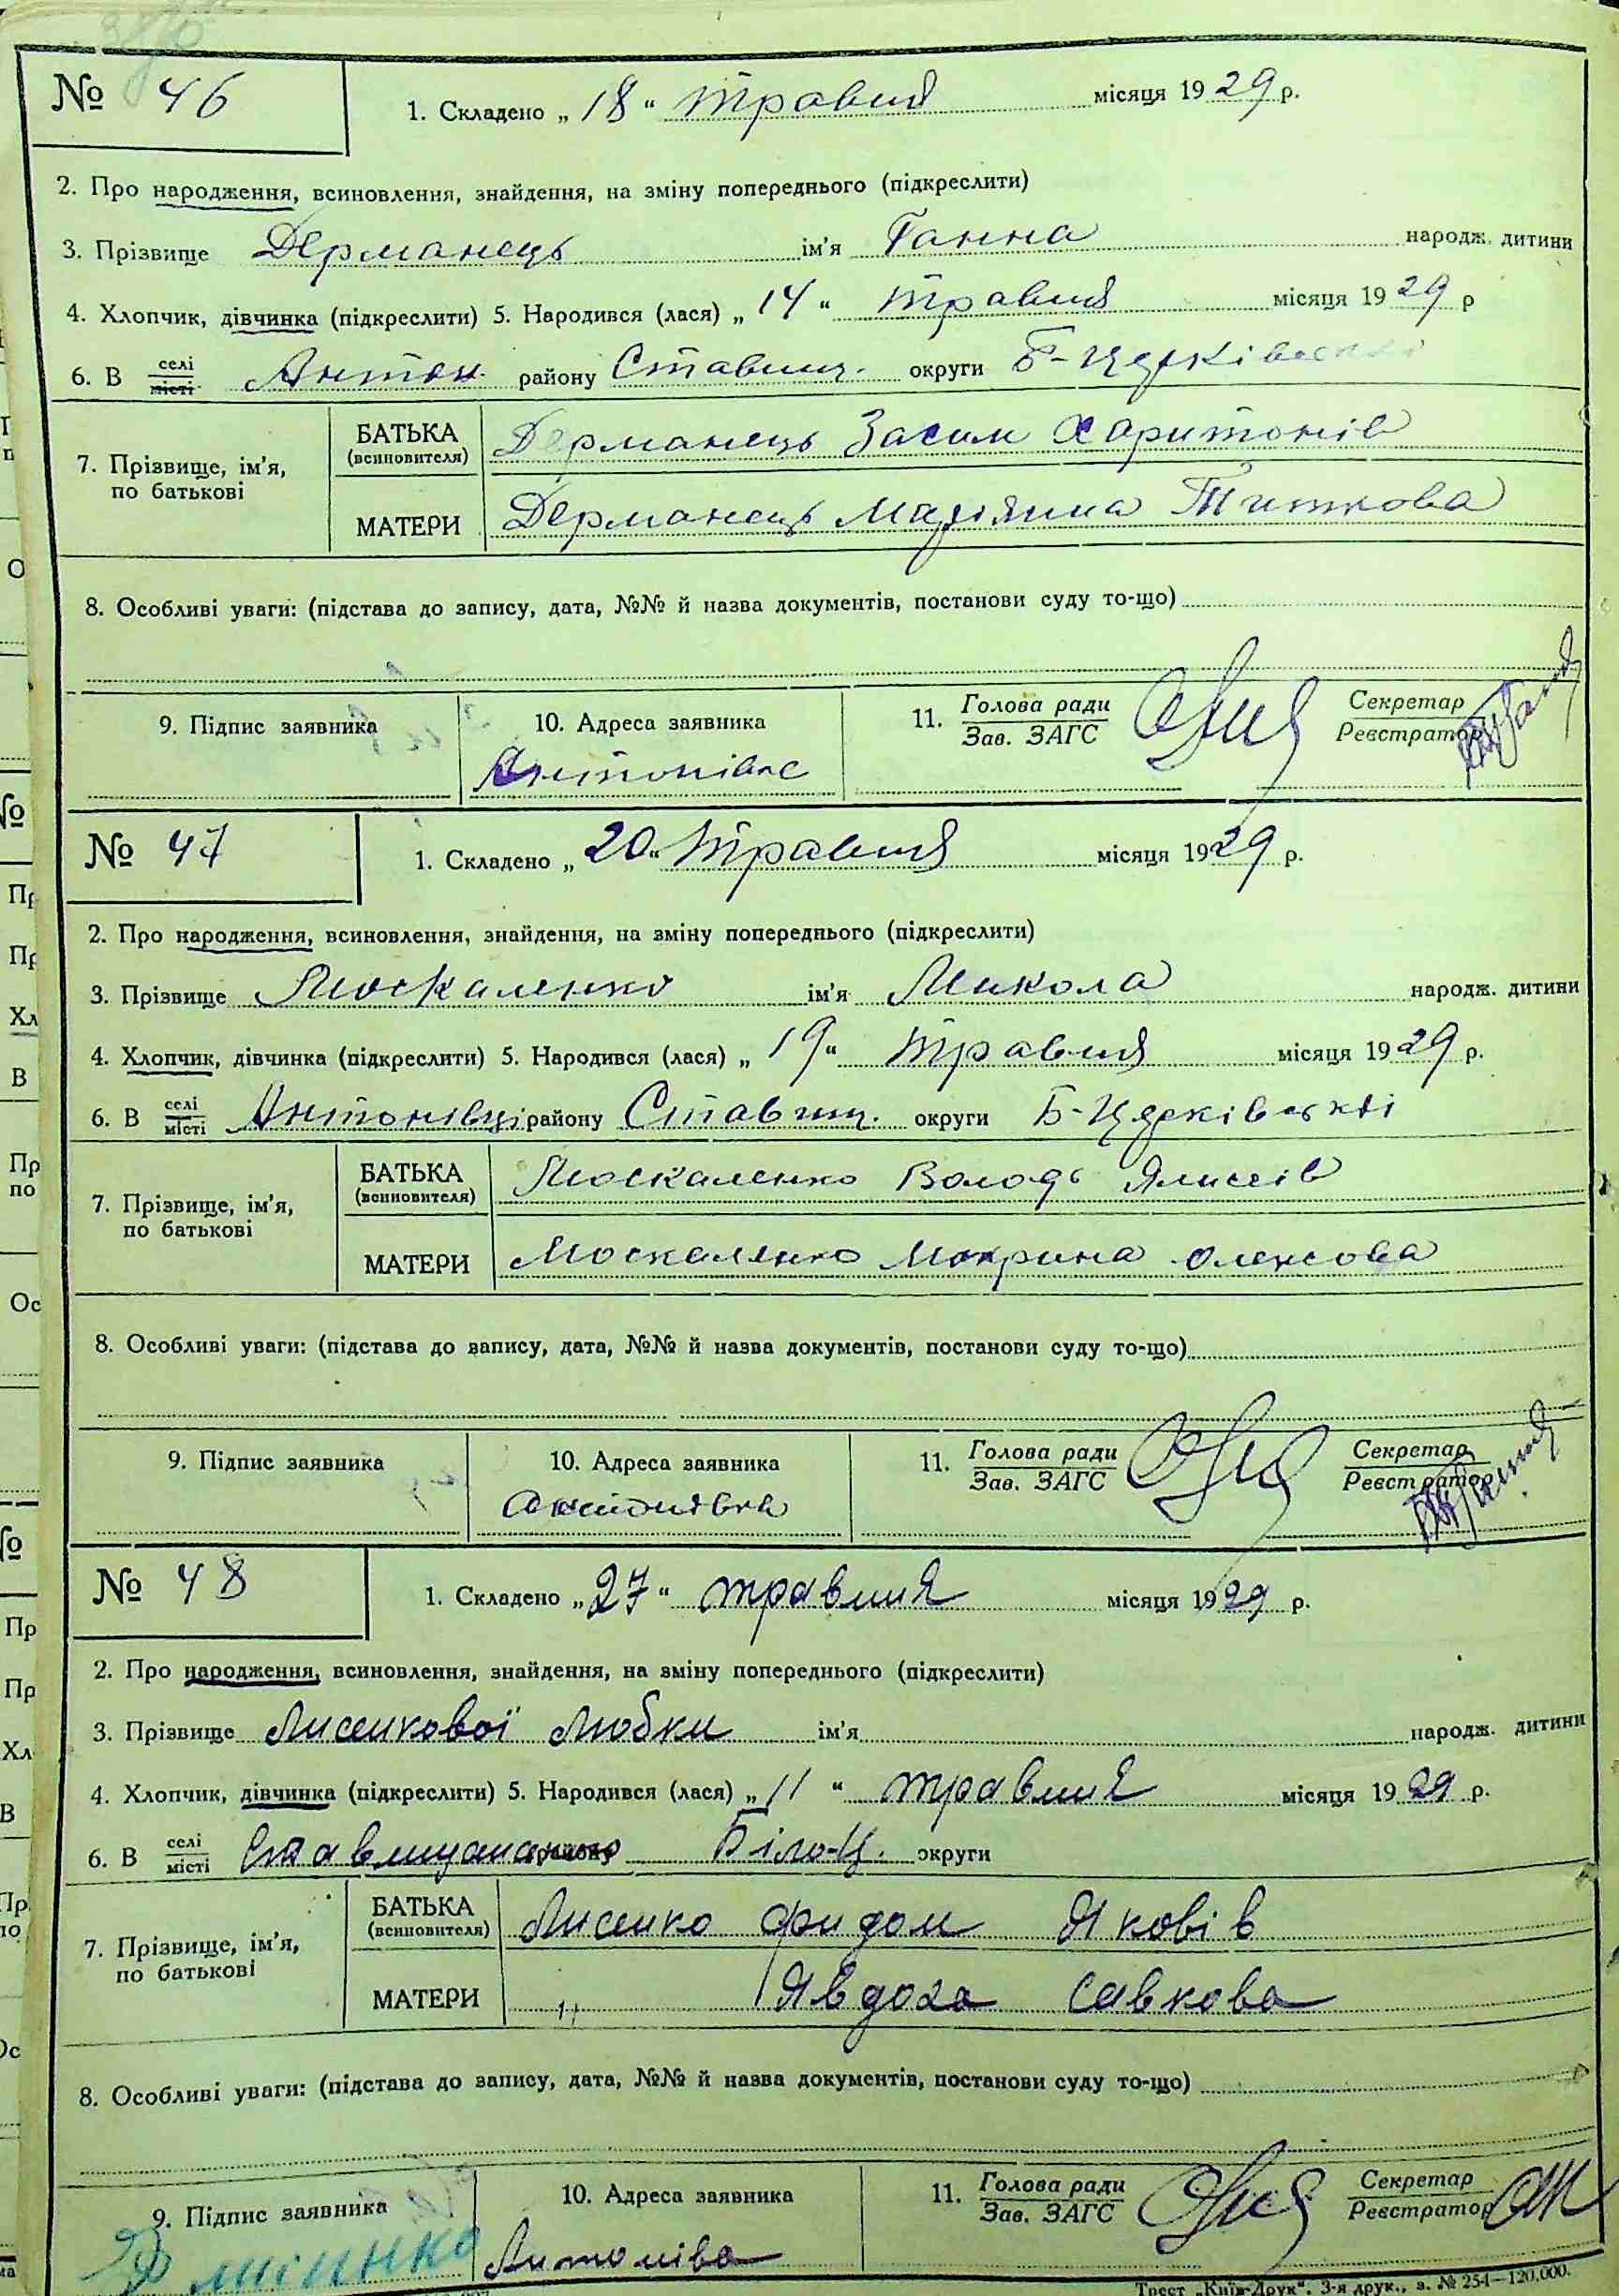 № 46
1. Складено „ 18 “ травня місяця 1929 р.
2. Про народження, всиновлення, знайдення, на зміну попереднього (підкреслити)
3. Прізвище Дерманець ім'я Ганна народж. дитини
4. Хлопчик, дівчинка (підкреслити) 5. Народився (лася) „ 14 “ травня місяця 1929 р
6. В селі місті Антон. району Ставищ. округи Б-Церківської
7. Прізвище, ім'я, по батькові
БАТЬКА (всиновителя) Дерманець Засим Харитонів
МАТЕРИ Дерманець Маріяна Титкова
8. Особливі уваги: (підстава до запису, дата, №№ й назва документів, постанови суду то-що)
9. Підпис заявника
10. Адреса заявника
Антонівка
11. Голова ради Зав. ЗАГС
Секретар Реєстратор
№ 47
1. Складено „ 20 “ травня місяця 1929 р.
2. Про народження, всиновлення, знайдення, на зміну попереднього (підкреслити)
3. Прізвище Москаленко ім'я Микола народж. дитини
4. Хлопчик, дівчинка (підкреслити) 5. Народився (лася) „ 19 “ травня місяця 1929 р.
6. В селі місті Антонівці району Ставищ. округи Б-Церківській
7. Прізвище, ім'я, по батькові
БАТЬКА (всиновителя) Москаленко Володь Ялисеів
МАТЕРИ Москаленко Мокрина Олексова
8. Особливі уваги: (підстава до запису, дата, №№ й назва документів, постанови суду то-що)
9. Підпис заявника
10. Адреса заявника
Антонівка
11. Голова ради Зав. ЗАГС
Секретар Реєстратор
№ 48
1. Складено „ 27 “ травня місяця 1929 р.
2. Про народження, всиновлення, знайдення, на зміну попереднього (підкреслити)
3. Прізвище Лисенкової Любки ім'я народж. дитини
4. Хлопчик, дівчинка (підкреслити) 5. Народився (лася) „ 11 “ травня місяця 1929 р.
6. В селі місті району Біло-Ц. округи
7. Прізвище, ім'я, по батькові
БАТЬКА (всиновителя) Лисенко Фидом Яковів
МАТЕРИ " Явдоха Савкова
8. Особливі уваги: (підстава до запису, дата, №№ й назва документів, постанови суду то-що)
9. Підпис заявника
10. Адреса заявника
Антонівка
11. Голова ради Зав. ЗАГС
Секретар Реєстратор
Трест „Київ-Друк“. 3-я друк., з. № 254—120.000.